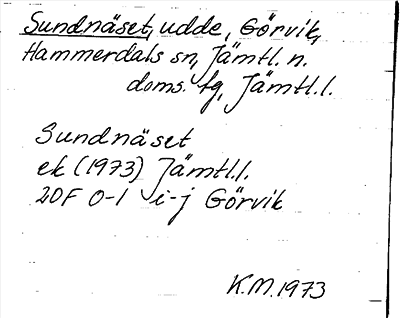 Sundnäset, udde, Görvik,
Hammerdals sn, Jämtl. n.
doms. fg, Jämtl. l.
Sundnäset
ek (1973) Jämtl. l.
20F 0-1 i-j Görvik
K.M. 1973